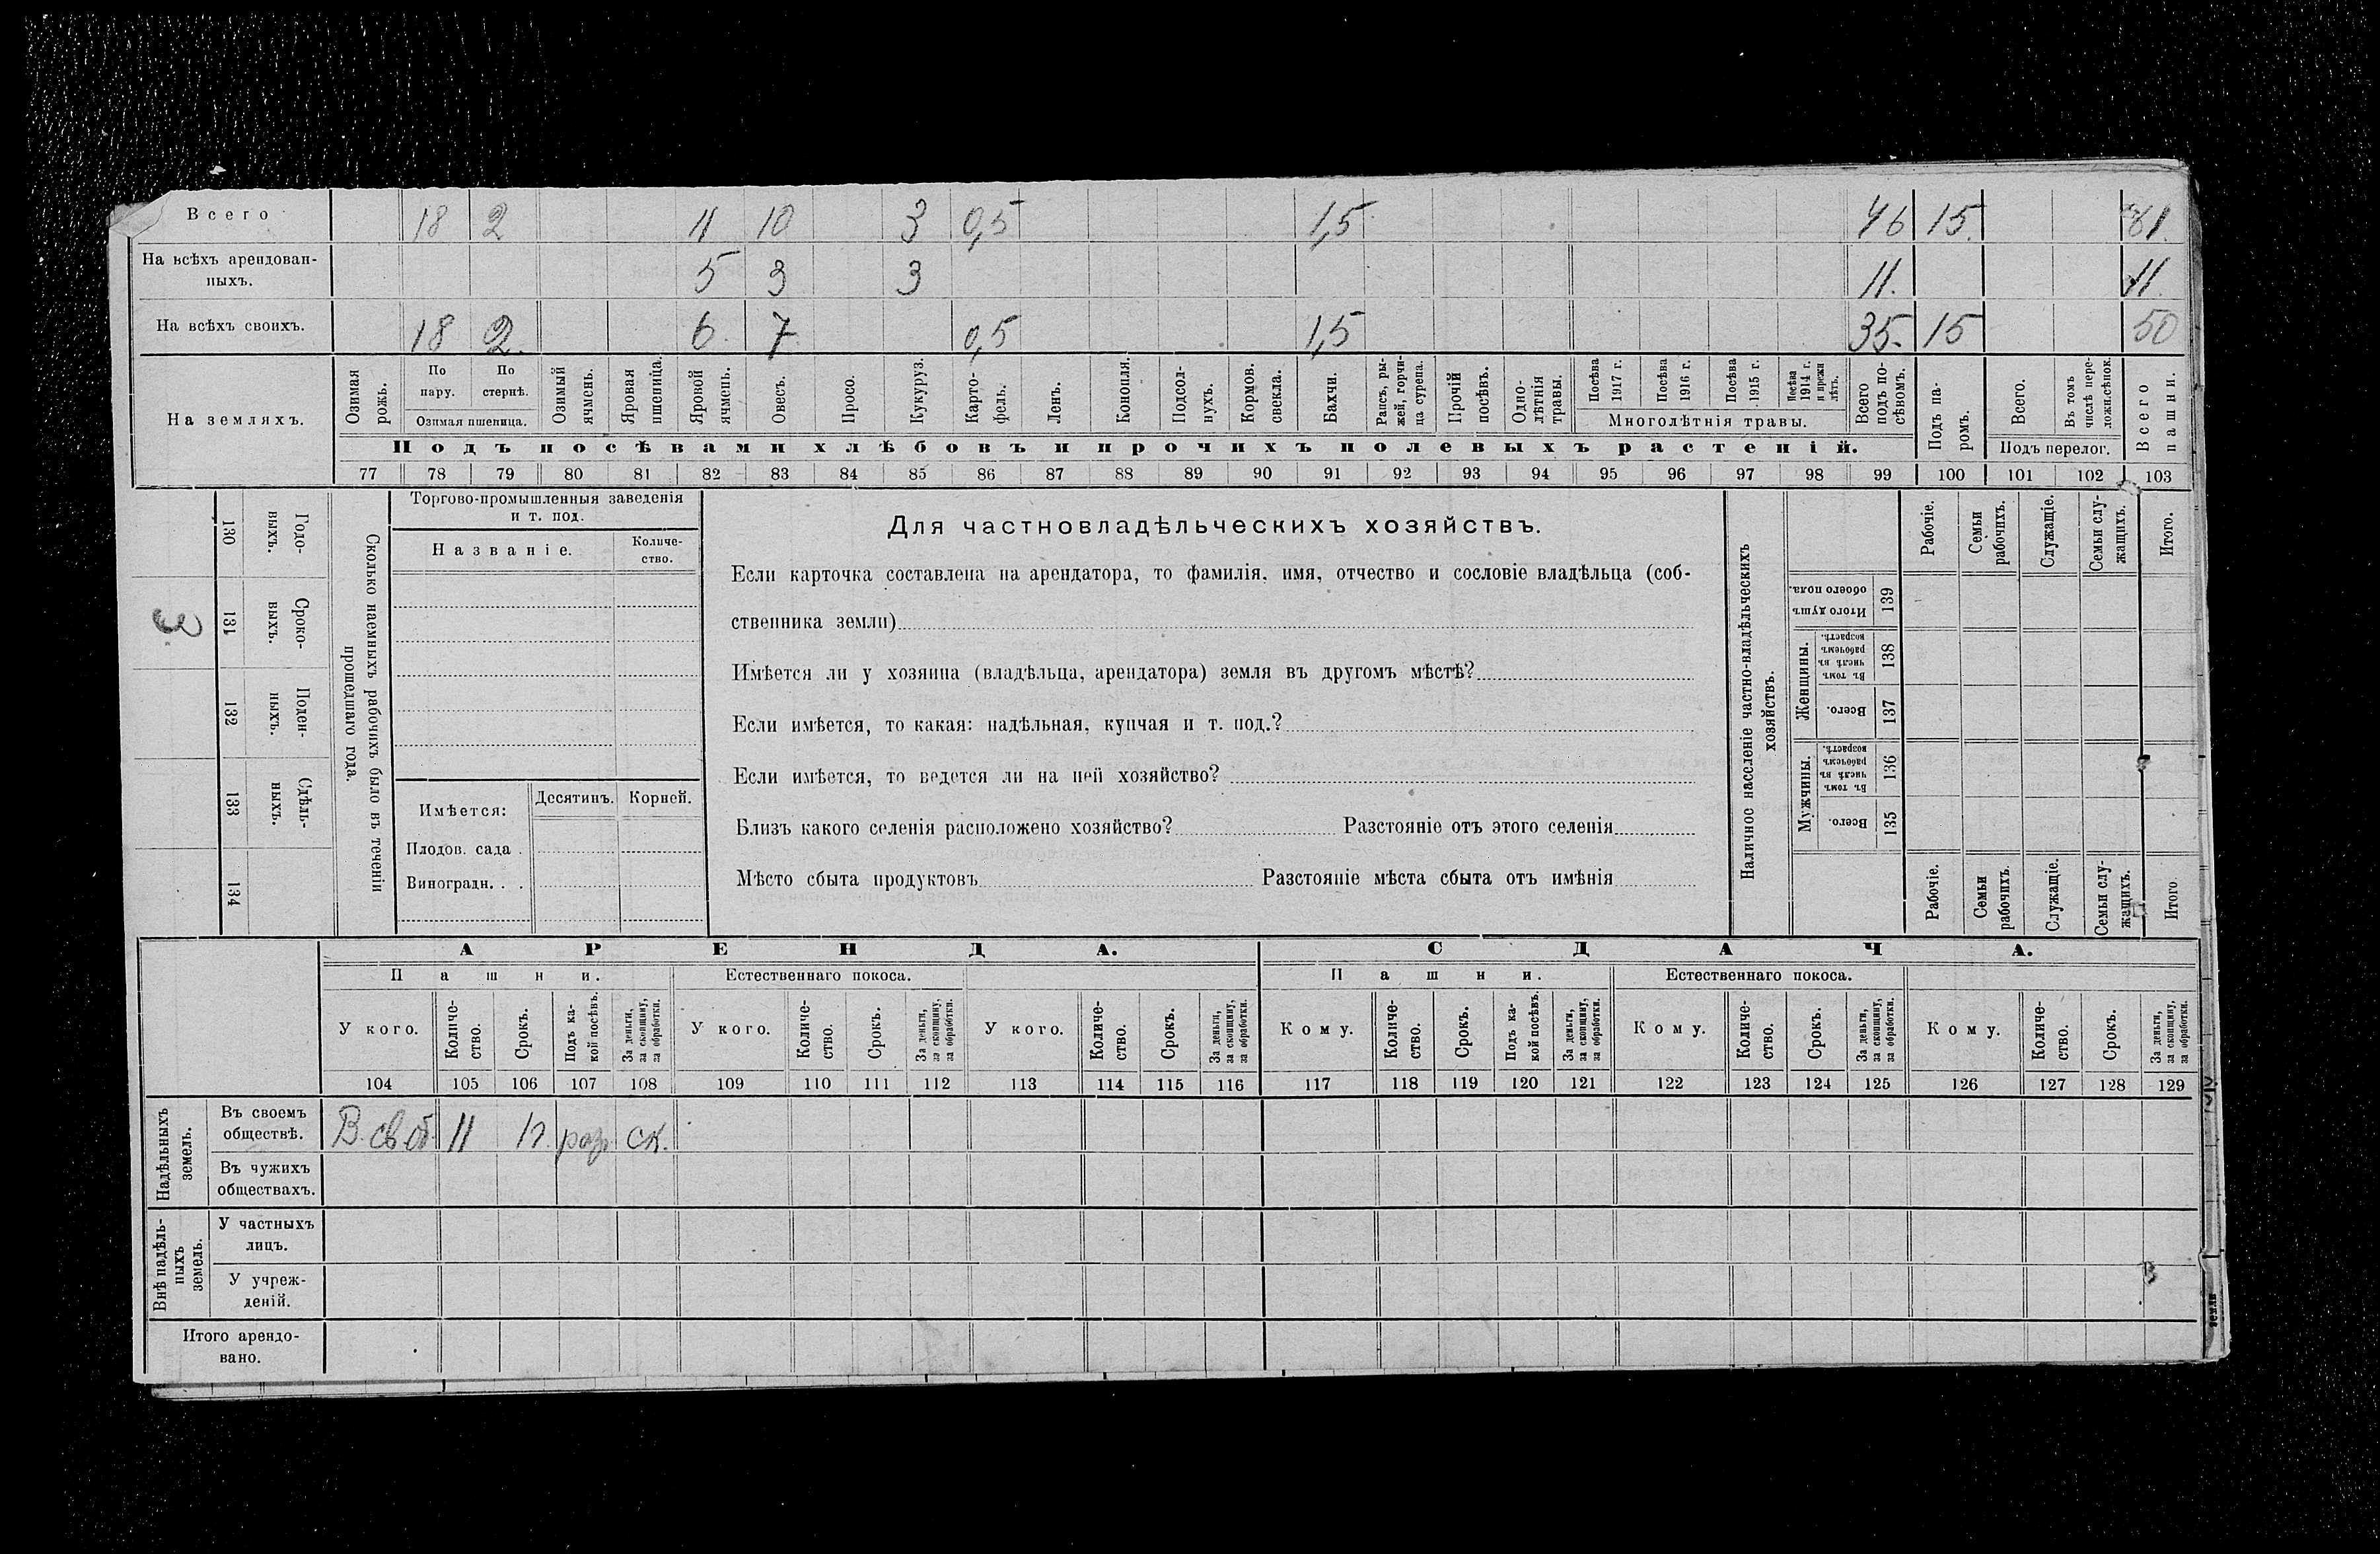 Всего 18 2 11 10 3 0,5 1,5 46 15. 61.
На всѣхъ арендован-
ныхъ. 5 3 3 11. 11
На всѣхъ своихъ. 18 2. 6. 7 0,5 1,5 35. 15 50
На земляхъ.
Озимая рожь.
По пару.
По стернѣ.
Озимая пшеница.
Озимый ячмень.
Яровая пшеница.
Яровой ячмень.
Овесъ.
Просо.
Кукуруз.
Карто-
фель.
Ленъ.
Конопля.
Подсол-
нухъ.
Кормов. свекла.
Бахчи.
Рапсъ, ры-
жей, горчи-
ца сурепа.
Прочій посѣвъ.
Одно-
лѣтнія травы.
Посѣва 1917 г.
Посѣва 1916 г.
Посѣва 1915 г.
Посѣва 1914 г. и прежн лѣтъ.
Многолѣтнія травы.
Всего подъ по-
сѣвомъ.
Подъ посѣвами хлѣбовъ и прочихъ полевыхъ растеній.
Подъ па-
ромъ.
Всего.
Въ томъ числѣ пере-
ложн.сѣнок.
Подъ перелог.
Всего пашни.
77 78 79 80 81 82 83 84 85 86 87 88 89 90 91 92 93 94 95 96 97 98 99 100 101 102 103
130 Годо-
выхъ.
3 131 Сроко-
выхъ.
132 Поден-
ныхъ.
133 Сдѣль-
ныхъ.
134
Сколько наемныхъ рабочихъ было въ теченіи
прошедшаго года.
Торгово-промышленныя заведенія
и т. под.
Названіе. Количе-
ство.
Имѣется: Десятинъ. Корней.
Плодов. сада .
Виноградн. . .
Для частновладѣльческихъ хозяйствъ.
Если карточка составлена на арендатора, то фамилія, имя, отчество и сословіе владѣльца (соб-
ственника земли)
Имѣется ли у хозяина (владѣльца, арендатора) земля въ другомъ мѣстѣ?
Если имѣется, то какая: надѣльная, купчая и т. под.?
Если имѣется, то ведется ли на ней хозяйство?
Близъ какого селенія расположено хозяйство? Разстояніе отъ этого селенія
Мѣсто сбыта продуктовъ Разстояніе мѣста сбыта отъ имѣнія
Наличное населеніе частно-владѣльческихъ
хозяйствъ.
Рабочіе.
Семьи рабочихъ.
Служащіе.
Семьи слу-
жащихъ.
Итого.
Итого душъ обоего пола. 139
Женщины.
Въ томъ числѣ въ рабочемъ возрастѣ. 138
Всего. 137
Мужчины.
Въ томъ числѣ въ рабочемъ возрастѣ. 136
Всего. 135
Рабочіе.
Семьи рабочихъ.
Служащіе.
Семьи слу-
жащихъ.
Итого
АРЕНДА. СДАЧА.
Пашни. Естественнаго покоса. Пашни. Естественнаго покоса.
У кого.
Количе-
ство.
Срокъ.
Подъ ка-
кой посѣвъ.
За деньги, за скопщину, за обработки.
У кого.
Количе-
ство.
Срокъ.
За деньги, за скопщину, за обработки.
У кого.
Количе-
ство.
Срокъ.
За деньги, за скопщину, за обработки.
Кому.
Количе-
ство.
Срокъ.
Подъ ка-
кой посѣвъ.
За деньги, за скопщину, за обработки.
Кому.
Количе-
ство.
Срокъ.
За деньги, за скопщину, за обработки.
Кому.
Количе-
ство.
Срокъ.
За деньги, за скопщину, за обработки.
104 105 106 107 108 109 110 111 112 113 114 115 116 117 118 119 120 121 122 123 124 125 126 127 128 129
Надѣльныхъ земель.
Въ своемъ
обществѣ. В. св об. 11 раз. ск.
Въ чужихъ
обществахъ.
Внѣ надѣль-
ныхъ земель.
У частныхъ
лицъ.
У учреж-
деній.
Итого арендо-
вано.